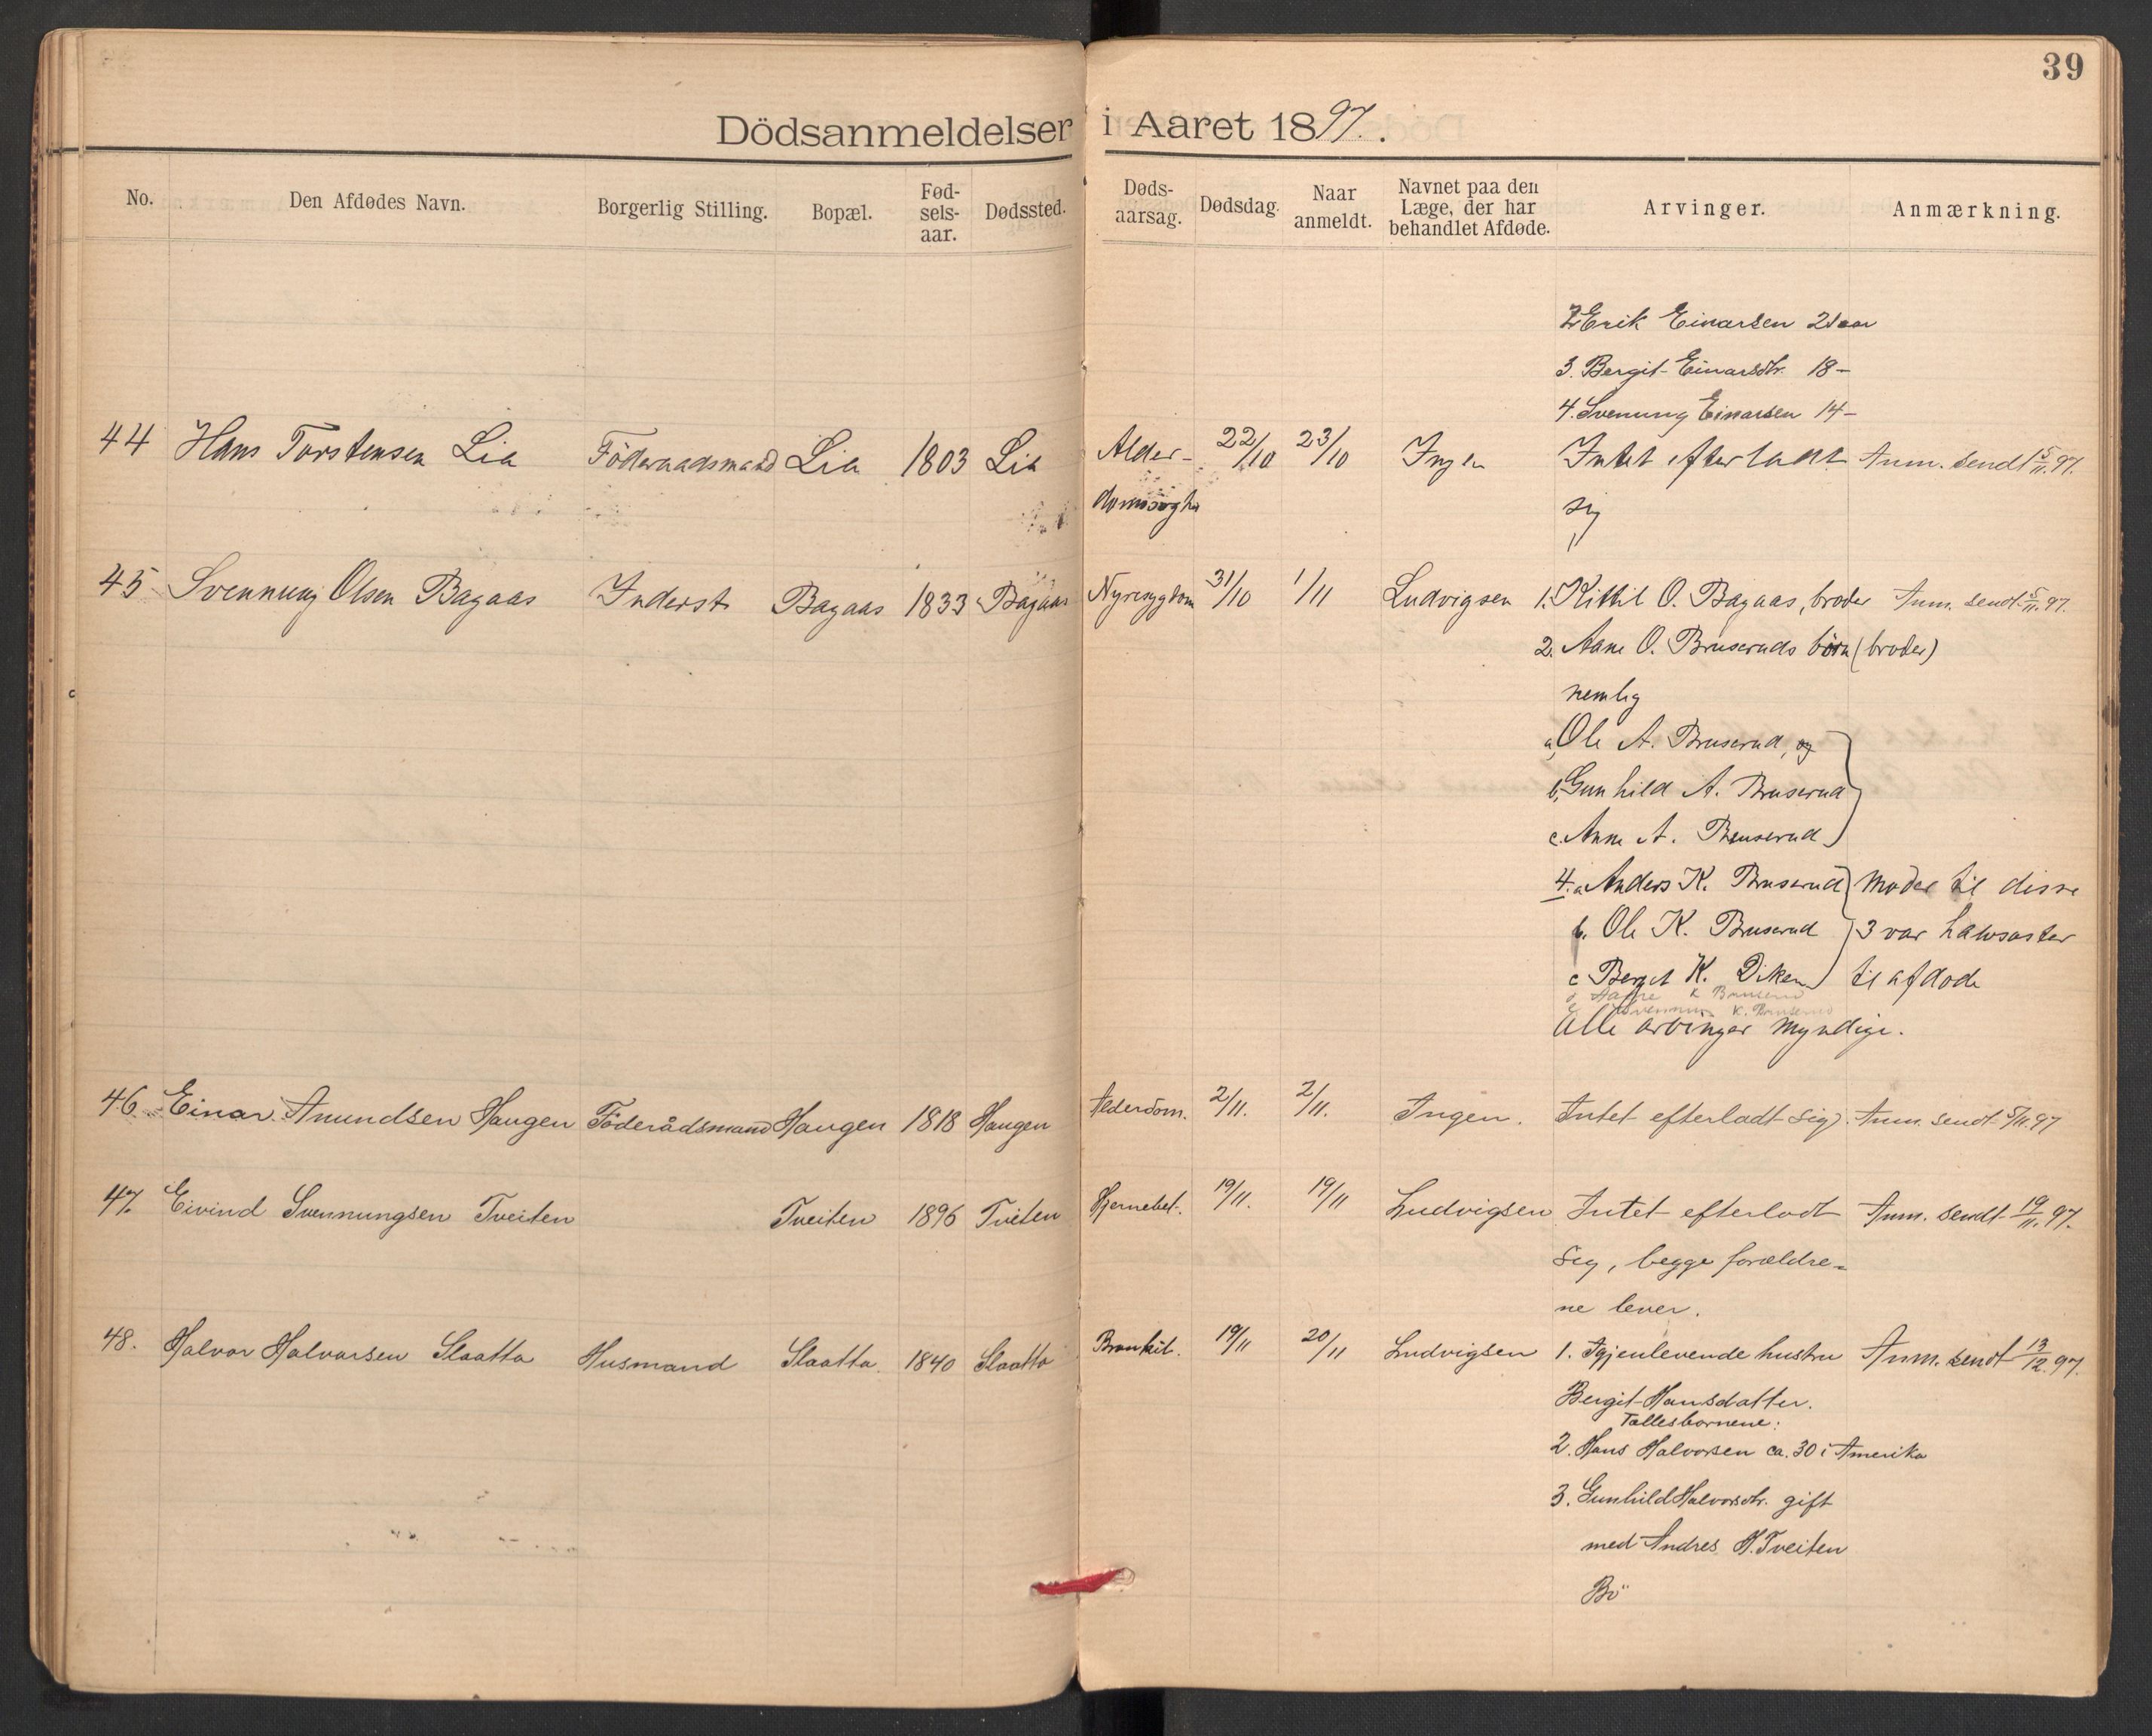 39
Dödsanmeldelser i Aaret 1897.
No. Den Afdødes Navn. Borgerlig Stilling. Bopæl. Fød-sels-aar. Dødssted. Døds-aarsag. Dødsdag. Naar anmeldt. Navnet paa den Læge, der har behandlet Afdøde. Arvinger. Anmærkning.
2 Erik Einarsen 21 aar
3. Bergit Einarsdtr. 18 –
4. Svenung Einarsen 14 –
44 Hans Torstensen Lia Föderaadsmand Lia 1803 Lia Alder- 22/10 23/10 Ingen Intet efterladt Anm. sendt 5/11.97.
sig
45 Svennung Olsen Bagaas Inderst Bagaas 1833 Bagaas Nyresygdom 31/10 1/11 Ludvigsen 1. Kittil O. Bagaas, broder Anm. sendt 5/11.97.
2. Aane O. Bruseruds börn (broder)
nemlig
a, Ole A. Bruserud, og
b, Gunhild A. Bruserud
c. Anne A. Bruserud
4. a Anders K. Bruserud Moder til disse
b. Ole K. Bruserud 3 var halvsøster
c Bergit K. Diken til afdøde
K. Bruserud
K. Bruserud
Alle arvinger myndige.
46 Einar Amundsen Haugen Föderådsmand Haugen 1818 Haugen Alderdom. 2/11. 2/11. Ingen. Intet efterladt sig. Anm. sendt 5/11.97
47. Eivind Svennungsen Tveiten Tveiten 1896 Tveiten Hjernebet. 19/11. 19/11 Ludvigsen Intet efterladt Anm. sendt 19/11.97.
sig, begge forældre-
ne lever.
48. Halvor Halvorsen Slaatta Husmand Slaatta. 1840 Slaatta Bronkit. 19/11 20/11 Ludvigsen 1. Igjenlevende hustru Anm. sendt 13/12.97.
Bergit Hansdatter.
Fællesbørnene:
2. Hans Halvorsen ca. 30 i Amerika
3. Gunhild Halvorsdtr. gift
med Andres H. Tveiten
Bö